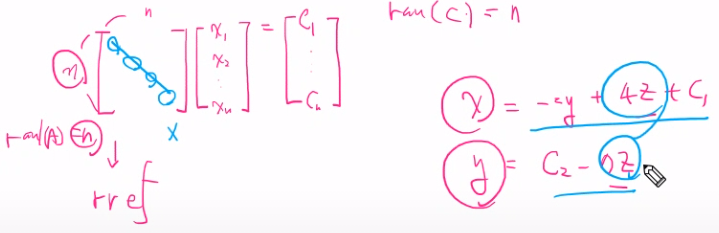 n
n [ ] [ x₁ x₂ ⋮ xₙ ] = [ C₁ ⋮ Cₙ ]
X
ran(A) = n
rref
ran(C) = n
x = -cy + 4z + C₁
y = C₂ - z